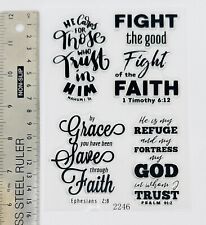 HE Cares FOR
Those
WHO
Trust
IN
HIM
NAHUM 1:7
FIGHT
the good
Fight
of the
FAITH
1 Timothy 6:12
by
Grace
you have been
Save
through
Faith
Ephesians 2:8
He is my
REFUGE
and my
FORTRESS
my
GOD
in whom I
TRUST
PSALM 91:2
2246
NON-SLIP
STEEL RULER